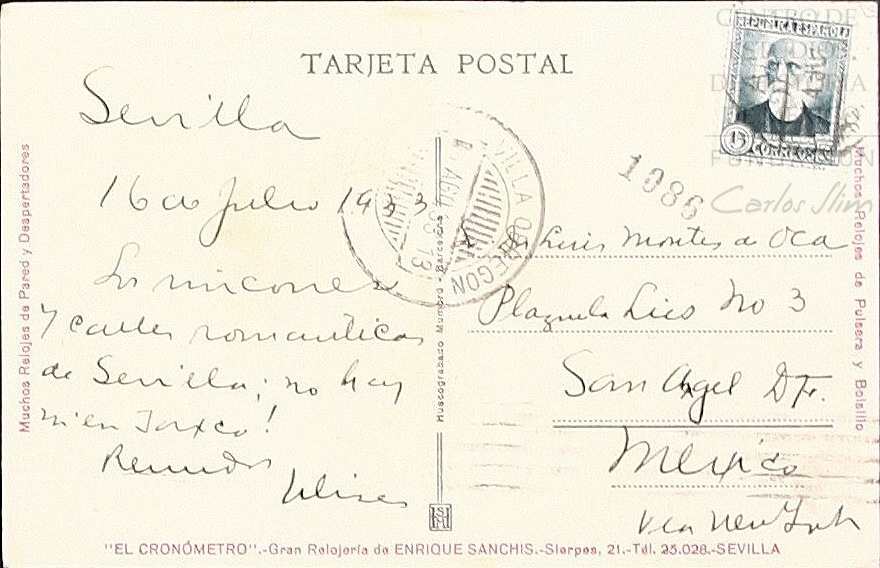 TARJETA POSTAL
REPUBLICA ESPAÑOLA
15
CORREOS
CENTRO DE
ESTUDIOS
DE HISTORIA
DE MEXICO
FUNDACIÓN
Carlos Slim
Sevilla
16 de Julio 1933
Los rincones
y calles romanticas
de Sevilla; no hay
ni en Taxco!
Recuerdos
Ulises
VILLA OBREGON
AGO 33 13
1086
Sr Luis Montes de Oca
Plazuela Licis No 3
San Angel D F.
Mexico
Via New York
Muchos Relojes de Pared y Despertadores
Huecograbado Mumbrú - Barcelona
Muchos Relojes de Pulsera y Bolsillo
"EL CRONÓMETRO".-Gran Relojería de ENRIQUE SANCHIS.-Sierpes, 21.-Tél. 25.028.-SEVILLA